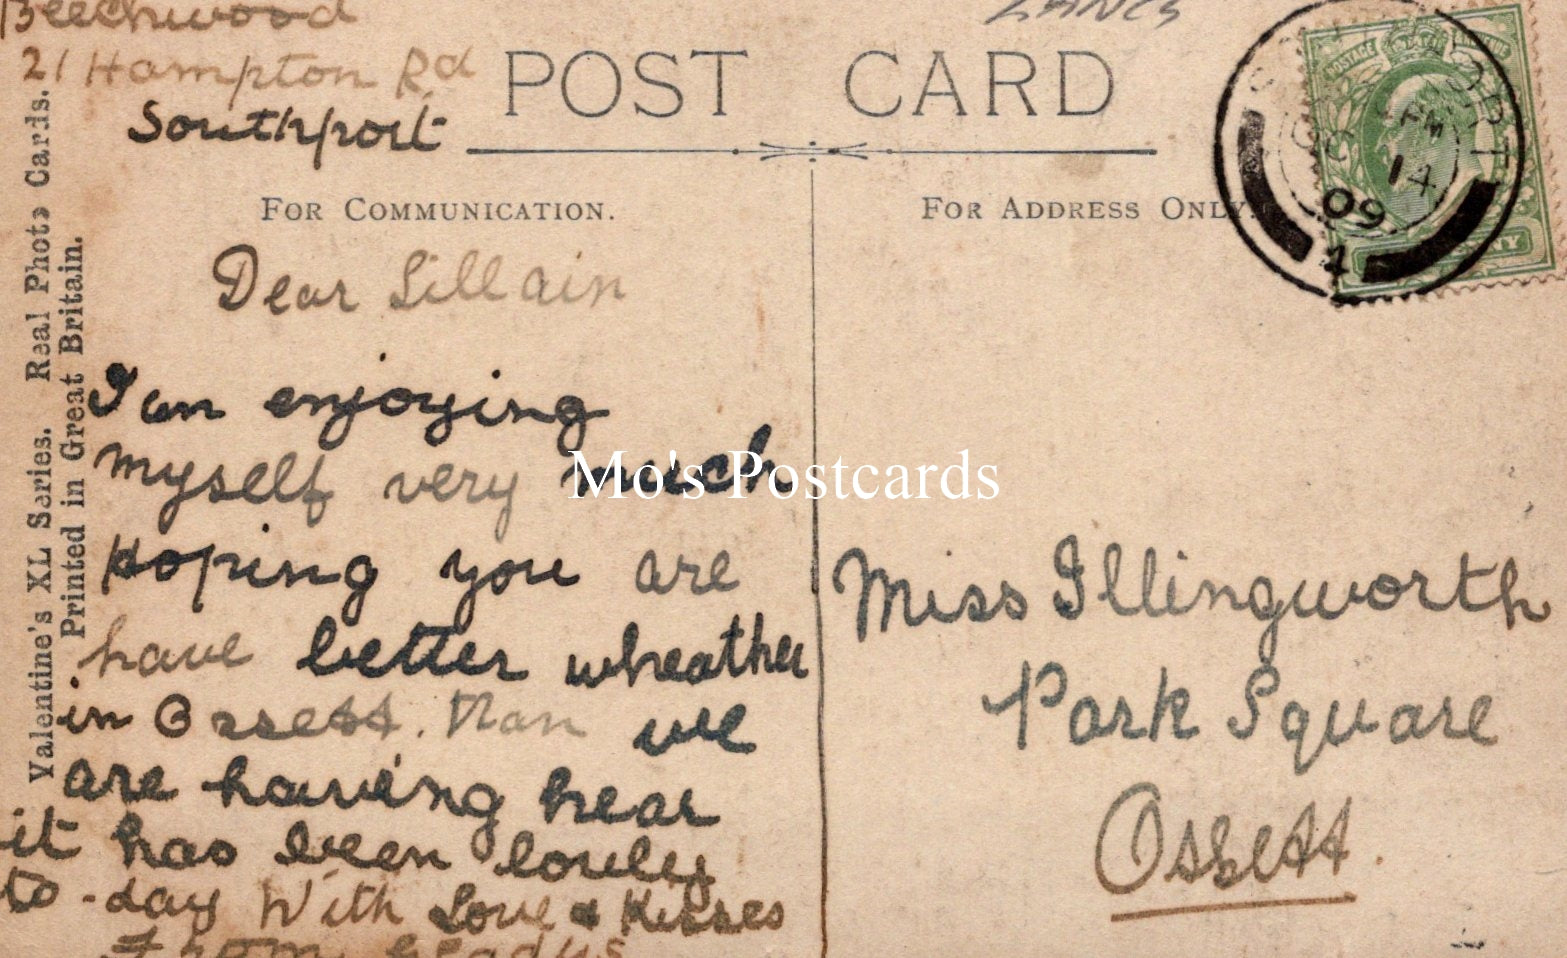 Beechwood
21 Hampton Rd
Southport
LANCS
POST CARD
FOR COMMUNICATION.
FOR ADDRESS ONLY.
Valentine's XL Series. Real Photo Cards.
Printed in Great Britain.
Dear Lillain
I am enjoying
myself very much
Hoping you are
have better wheather
in Ossett. Than we
are having hear
it has been lovely
to-day With Love & Kisses
From Gladys
Miss Illingworth
Park Square
Ossett.
SOUTHPORT
PM
14
09
1
POSTAGE
Mo's Postcards